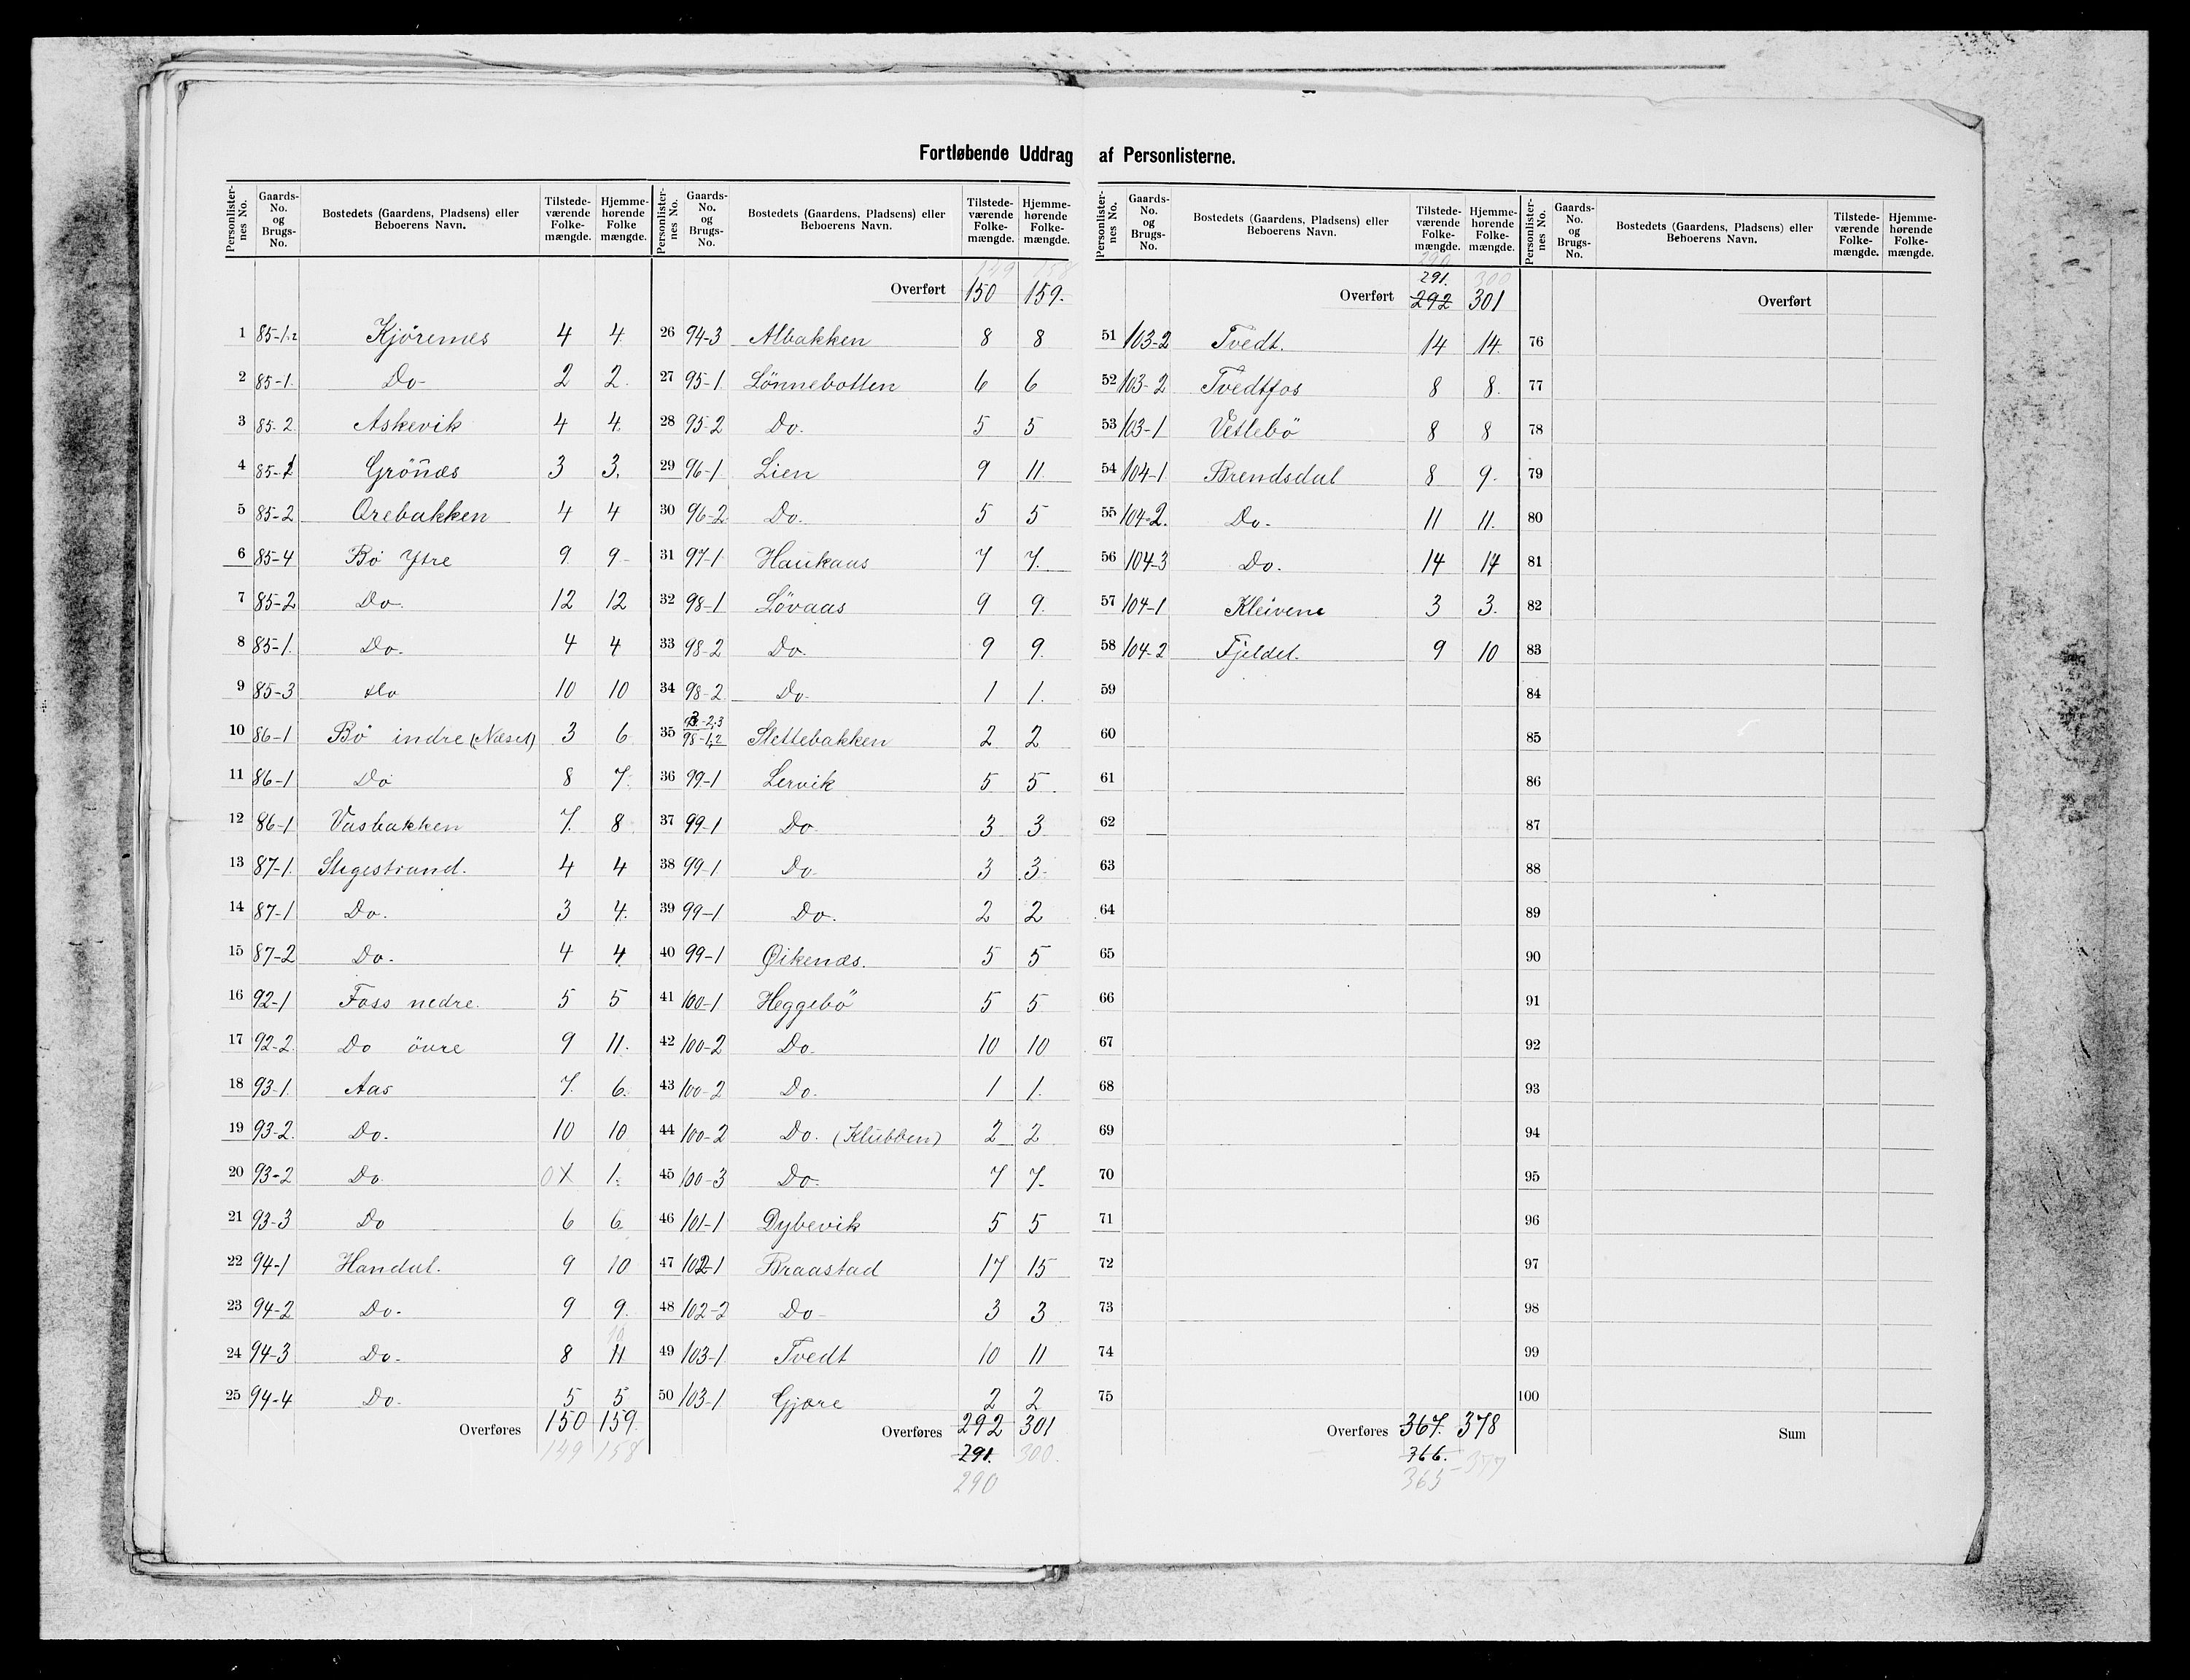 Fortløbende Uddrag af Personlisterne.
Personlister-nes No. | Gaards-No. og Brugs-No. | Bostedets (Gaardens, Pladsens) eller Beboerens Navn. | Tilstede-værende Folke-mængde. | Hjemme-hørende Folke mængde.
1 85-1.2 Kjörenes 4 4
2 85-1. Do- 2 2.
3 85-2 Askevik 4 4.
4 85-2 Grönæs 3 3.
5 85-2 Orebakken 4 4
6 85-4 Bö Ytre 9. 9-
7 85-2 Do. 12 12
8 85-1. Do. 4 4
9 85-3 Do 10 10
10 86-1 Bö indre (Næset) 3 6
11 86-1 Do 8 7.
12 86-1 Vasbakken 7. 8
13 87-1. Stegestrand. 4 4
14 87-1 Do. 3 4.
15 87-2 Do. 4 4
16 92-1 Foss nedre. 5 5
17 92-2. Do övre 9 11.
18 93-1. Aas 7. 6.
19 93-2. Do. 10 10
20 93-2 Do. 0 X 1.
21 93-3 Do 6 6.
22 94-1 Handal. 9 10
23 94-2 Do. 9 9.
10
24 94-3 Do. 8 11
25 94-4 Do. 5 5
Overføres 150 159.
149 158
Personlister-nes No. | Gaards-No. og Brugs-No. | Bostedets (Gaardens, Pladsens) eller Beboerens Navn. | Tilstede-værende Folke-mængde. | Hjemme-hørende Folke-mængde.
149 158
Overført 150 159.
26 94-3 Albakken 8 8
27 95-1. Lönnebotten 6 6
28 95-2 Do. 5 5
29 96-1 Lien 9 11.
30 96-2 Do. 5 5
31 97-1 Haukaas 7 7.
32 98-1 Lövaas 9 9.
33 98-2 Do 9 9.
34 98-2. Do. 1 1.
35 98-1,2 Slettebakken 2 2
36 99-1 Lervik 5 5.
37 99-1 Do 3 3
38 99-1. Do. 3 3.
39 99-1 Do. 2 2
40 99-1 Øikenæs. 5 5
41 100-1 Heggebö 5 5
42 100-2 Do. 10 10
43 100-2 Do. 1 1.
44 100-2 Do. (Klubben) 2 2
45 100-3 Do. 7 7.
46 101-1 Dybevik 5 5
47 102-1 Braastad 17 15
48 102-2 Do 3 3
49 103-1 Tvedt 10 11
50 103-1 Gjære 2 2
Overføres 292 301
291. 300.
290
Personlister-nes No. | Gaards-No. og Brugs-No. | Bostedets (Gaardens, Pladsens) eller Beboerens Navn. | Tilstede-værende Folke-mængde. | Hjemme-hørende Folke-mængde.
290
291. 300
Overført 292 301
51 103-2 Tvedt. 14 14.
52 103-2 Tvedtfos 8 8.
53 103-1 Vetlebö 8 8
54 104-1. Brendsdal 8 9.
55 104-2. Do. 11 11.
56 104-3 Do. 14 14
57 104-1 Kleivene 3 3.
58 104-2 Fjeldet. 9 10
59
60
61
62
63
64
65
66
67
68
69
70
71
72
73
74
75
Overføres 367. 378
366. 377
365
Personlister-nes No. | Gaards-No. og Brugs-No. | Bostedets (Gaardens, Pladsens) eller Beboerens Navn. | Tilstede-værende Folke-mængde. | Hjemme-hørende Folke-mængde.
Overført
76
77
78
79
80
81
82
83
84
85
86
87
88
89
90
91
92
93
94
95
96
97
98
99
100
Sum